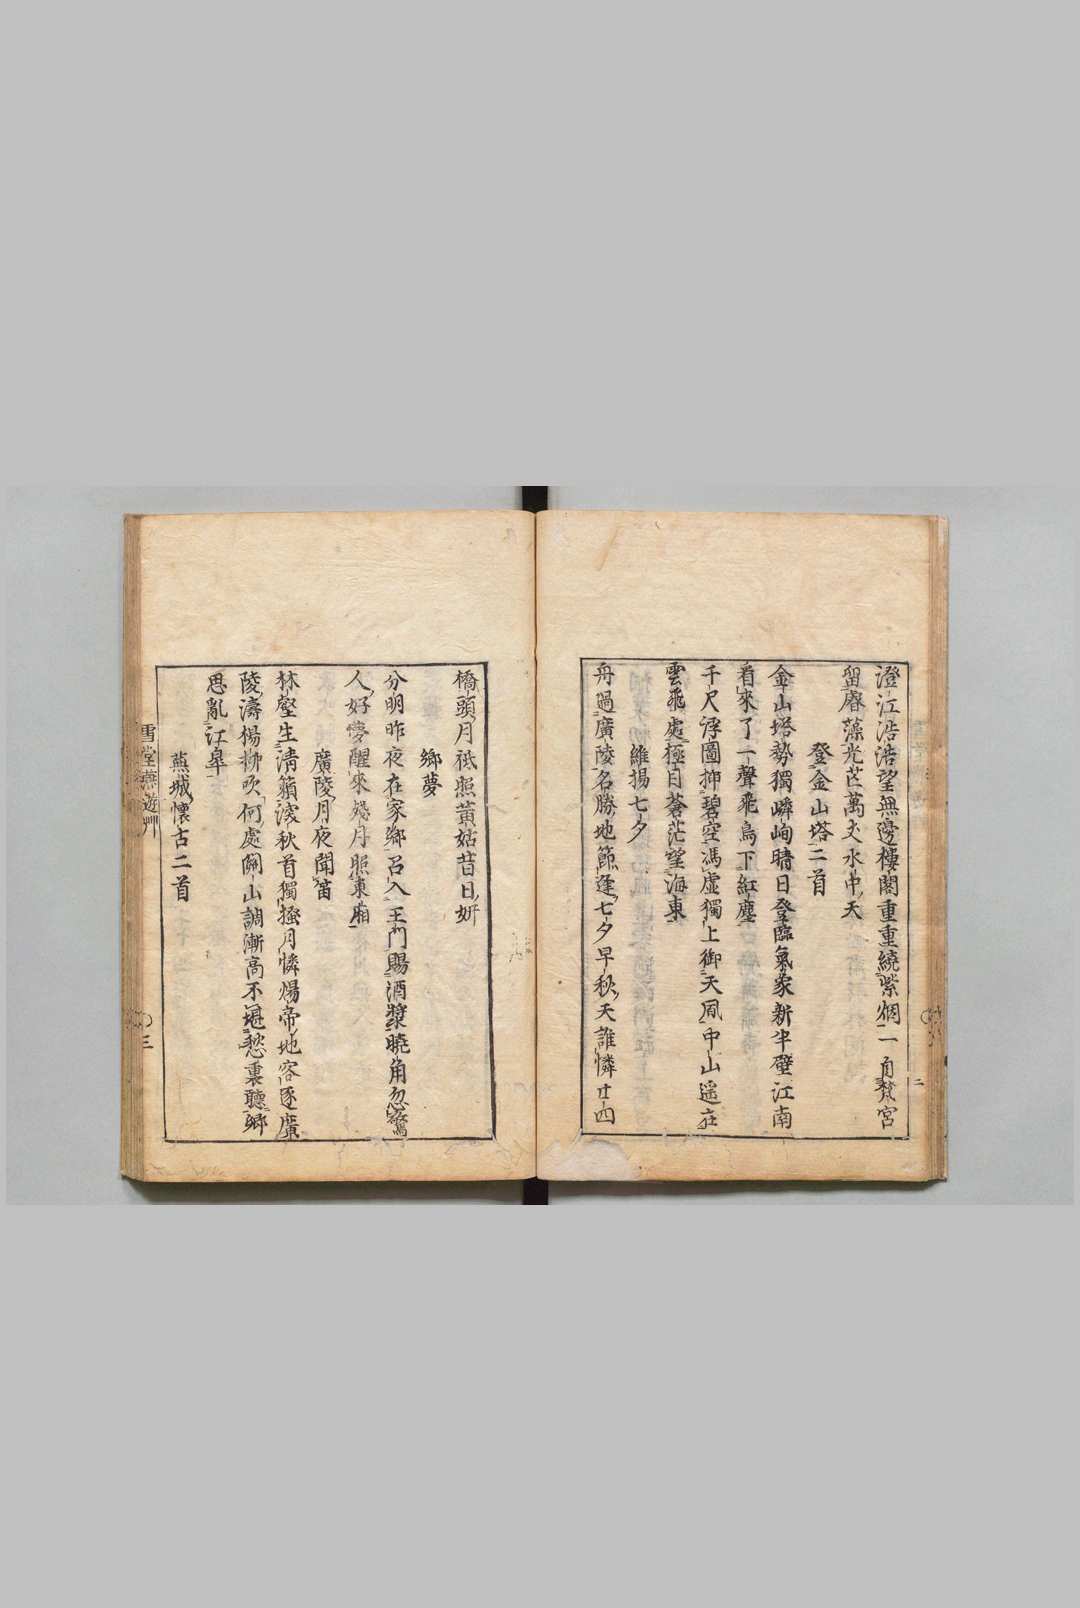 澄江浩浩望無邊樓閣重重繞紫烟一自梵宮
留睿藻光芒萬丈水中天
登金山塔二首
金山塔勢獨嶙峋晴日登臨氣象新半壁江南
看來了一聲飛鳥下紅塵
千尺浮圖抑碧空馮虛獨上御天風中山遥在
雲飛處極目蒼茫望海東
維揚七夕
舟過廣陵名勝地節逢七夕早秋天誰憐廿四
橋頭月祗照黃姑昔日妍
鄉夢
分明昨夜在家鄉召入王門賜酒漿曉角忽驚
人好夢醒來殘月照東廂
廣陵月夜聞笛
林壑生清籟滾秋首獨搔月憐煬帝地客逐廣
陵濤楊柳吹何處關山調漸高不堪愁裏聽鄉
思亂江皋
蕪城懷古二首
雪堂燕遊艸
三
二